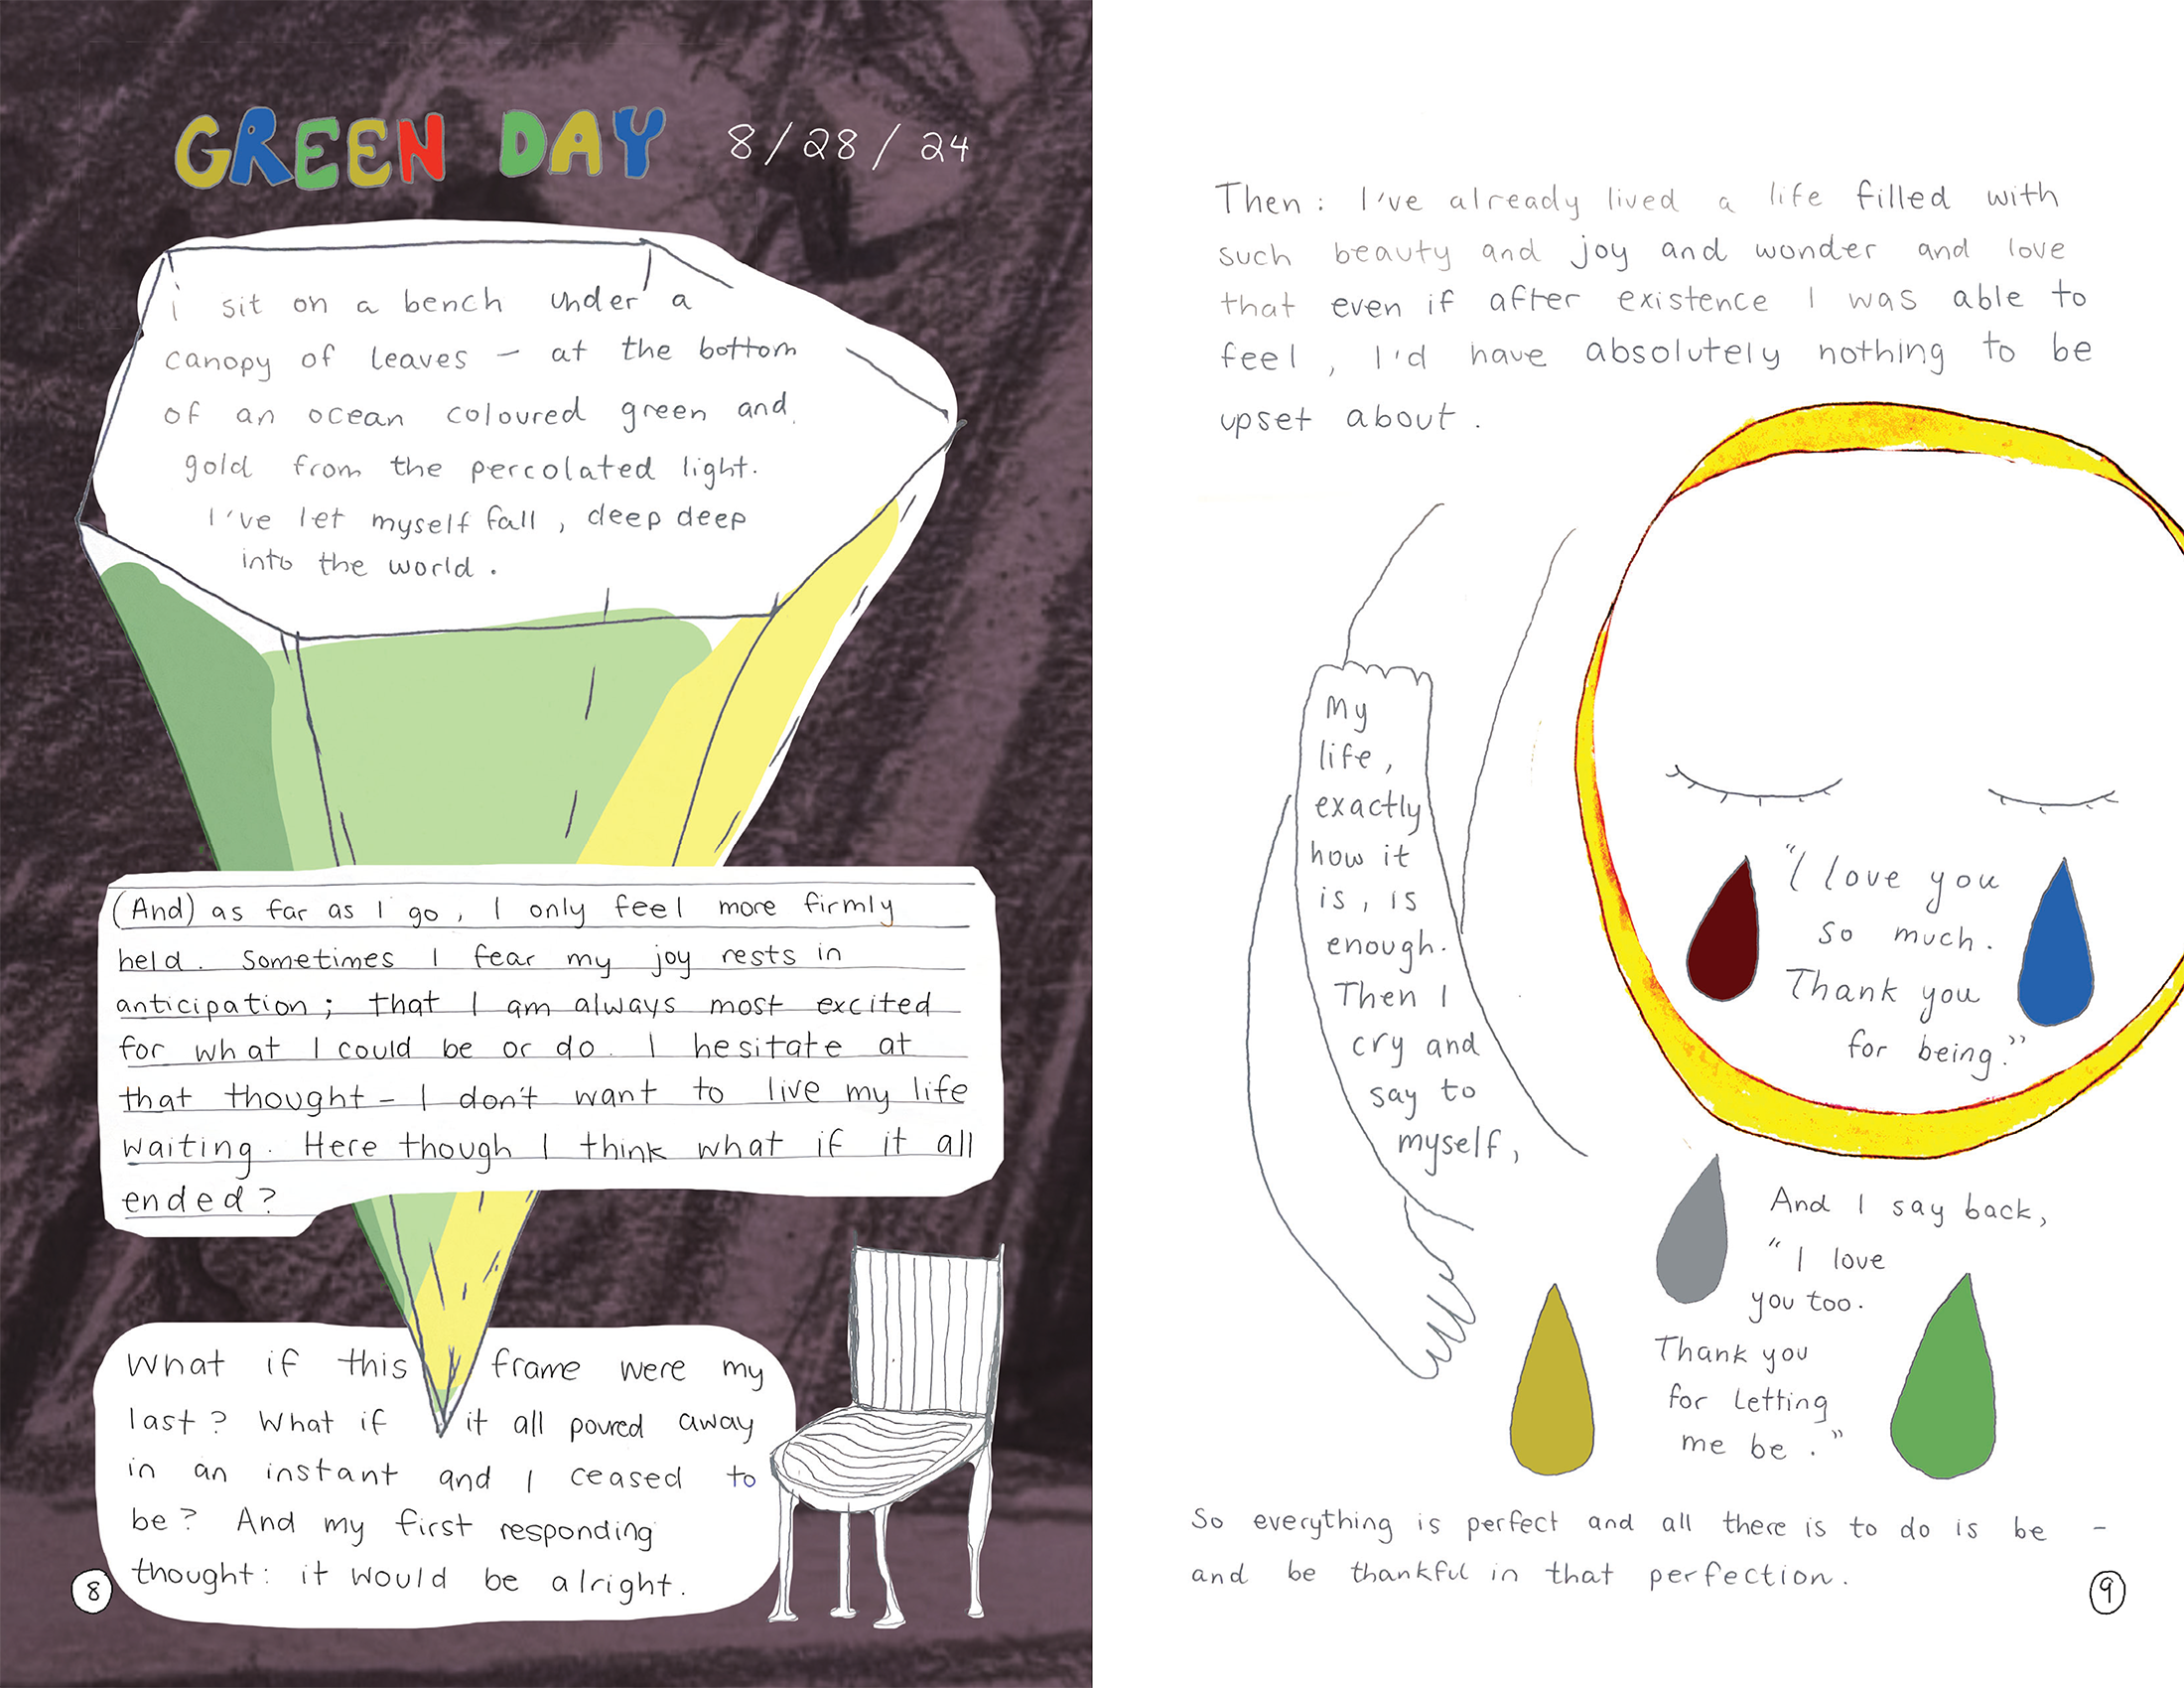 GREEN DAY 8/28/24
i sit on a bench under a
canopy of leaves — at the bottom
of an ocean coloured green and
gold from the percolated light.
I've let myself fall, deep deep
into the world.
(And) as far as I go, I only feel more firmly
held. Sometimes I fear my joy rests in
anticipation; that I am always most excited
for what I could be or do. I hesitate at
that thought – I don't want to live my life
waiting. Here though I think what if it all
ended?
What if this frame were my
last? What if it all poured away
in an instant and I ceased to
be? And my first responding
thought: it would be alright.
8
Then: I've already lived a life filled with
such beauty and joy and wonder and love
that even if after existence I was able to
feel, I'd have absolutely nothing to be
upset about.
My
life,
exactly
how it
is, is
enough.
Then I
cry and
say to
myself,
"I love you
so much.
Thank you
for being."
And I say back,
"I love
you too.
Thank you
for letting
me be."
So everything is perfect and all there is to do is be –
and be thankful in that perfection.
9